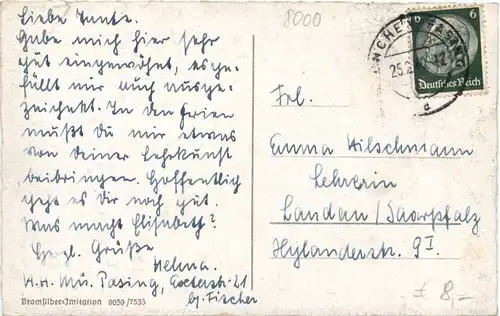 Liebe Tante.
Habe mich hier sehr
gut eingewöhnt, es ge-
fällt mir auch ausge-
zeichnet. In den Ferien
mußt Du mir etwas
von Deiner Lehrkunst
beibringen. Hoffentlich
geht es Dir noch gut.
Was macht Elisabeth?
Herzl. Grüße
Helma.
Mü. Pasing, 21
b/ Fischer
Bromsilber-Imitation 9039/7533
8000
MÜNCHEN-PASING
6 6
Deutsches Reich
Frl.
Emma Hilschmann
Lehrerin
Landau/Saarpfalz
Hylanderstr. 9I.
€ 8,-